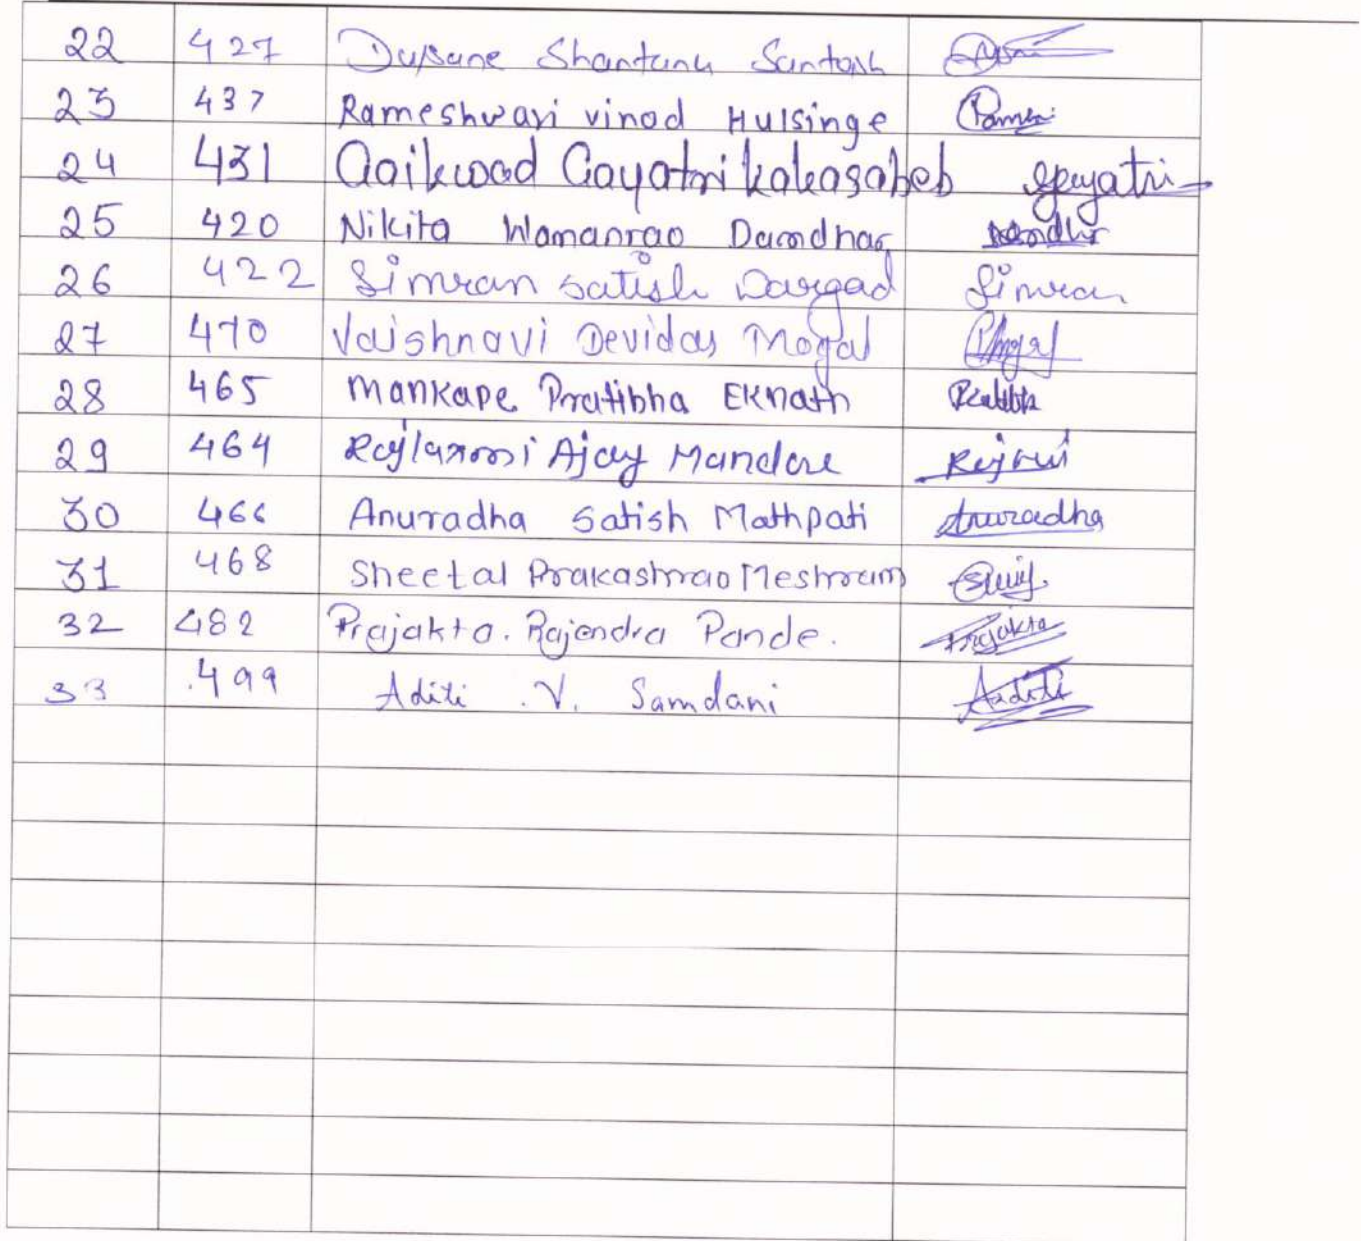 22 427 Dusane Shantanu Santosh
23 437 Rameshwari vinod Hulsinge
24 431 Gaikwad Gayatri kakasaheb Gayatri
25 420 Nikita Wamanrao Damdhar
26 422 Simran satish Dargad Simran
27 470 Vaishnavi Devidas Mogal
28 465 Mankape Pratibha EKnath
29 464 Rajlaxmi Ajay Mandore
30 466 Anuradha Satish Mathpati Anuradha
31 468 Sheetal Prakashrao Meshram
32 482 Prajakta. Rajendra Pande. Prajakta
33 499 Aditi .V. Samdani Aaditi